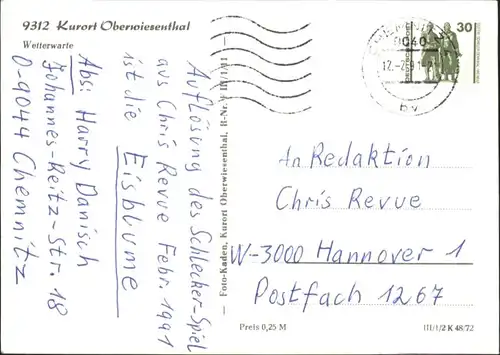 9312 Kurort Oberwiesenthal
Wetterwarte
Auflösung des Schlecker-Spiel
aus Chris Revue Febr. 1991
ist die Eisblume
Abs: Harry Danisch
Johannes-Reitz-Str. 18
O-9044 Chemnitz
— Foto-Kaden, Kurort Oberwiesenthal,
30
DEUTSCHE POST
9040
by
An Redaktion
Chris Revue
W-3000 Hannover 1
Postfach 1267
Preis 0,25 M
III/1/2 K 48/72